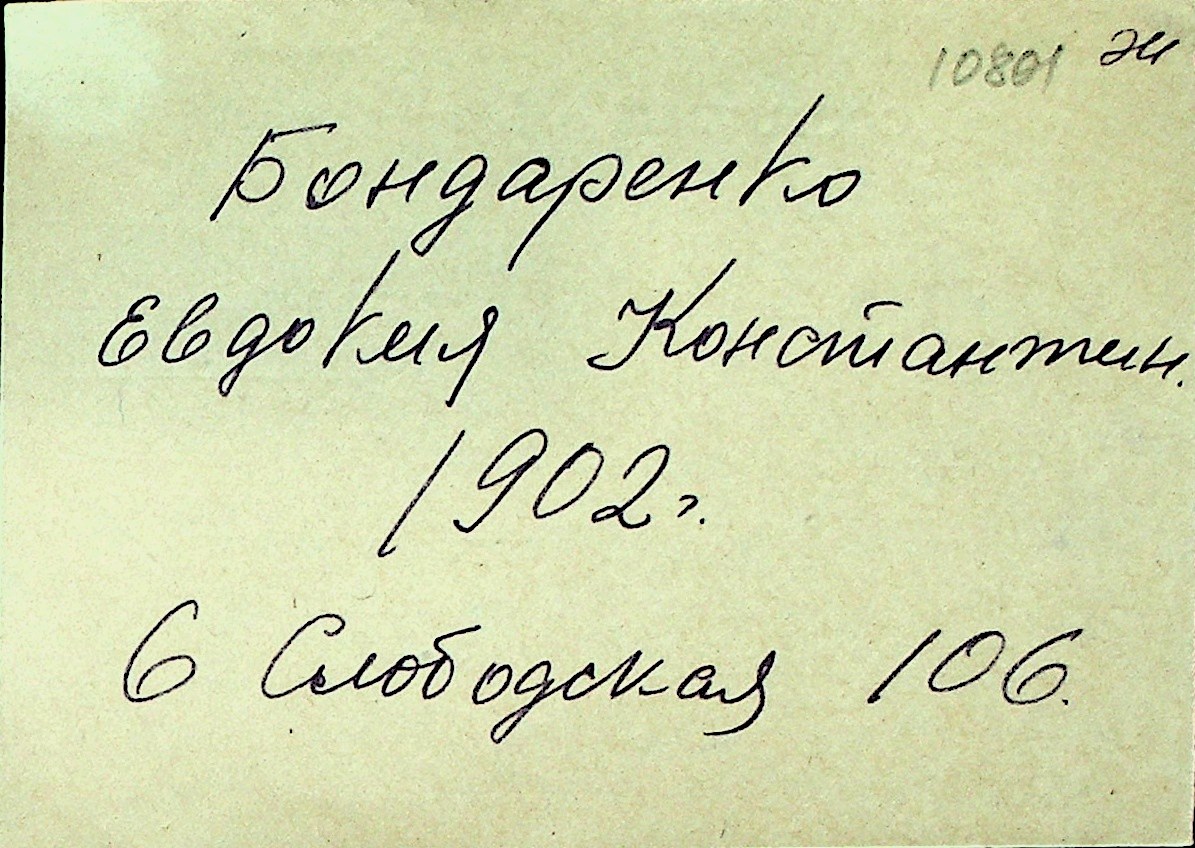 10801 ж
Бондаренко
Евдокия Константин.
1902г.
6 Слободская 106.